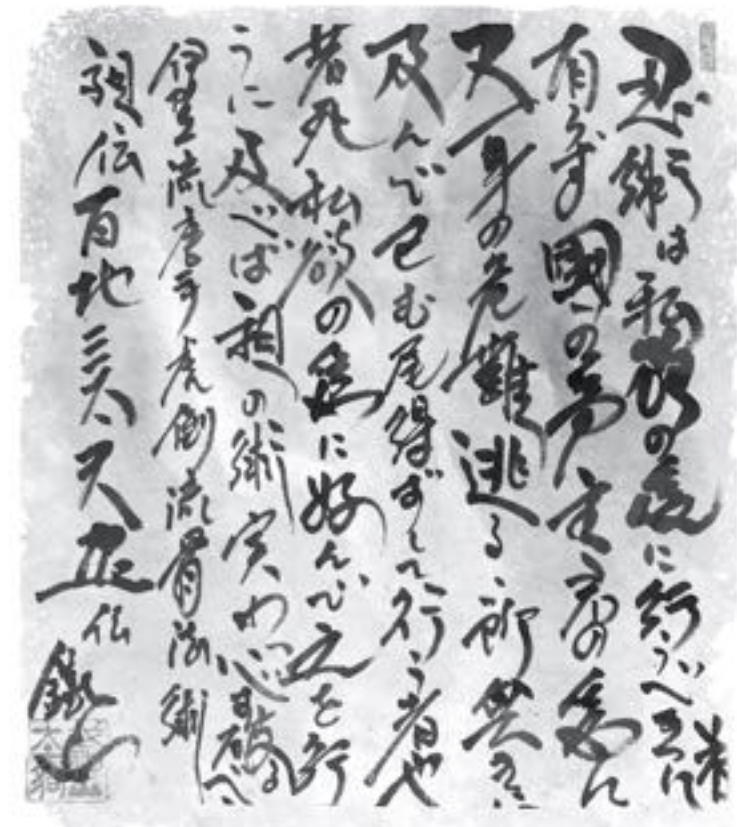 忍び術は私欲の為に行うべき者に
有らず國の為主君の為に
又一身の危難逃るゝ術無きに
及んで已む尾得ずして行う者也
若私欲の為に好んで之を行
うに及べば祖の術実わ必破るべ
伊賀流唐手虎倒流骨法術
祖伝百地三太夫正伝